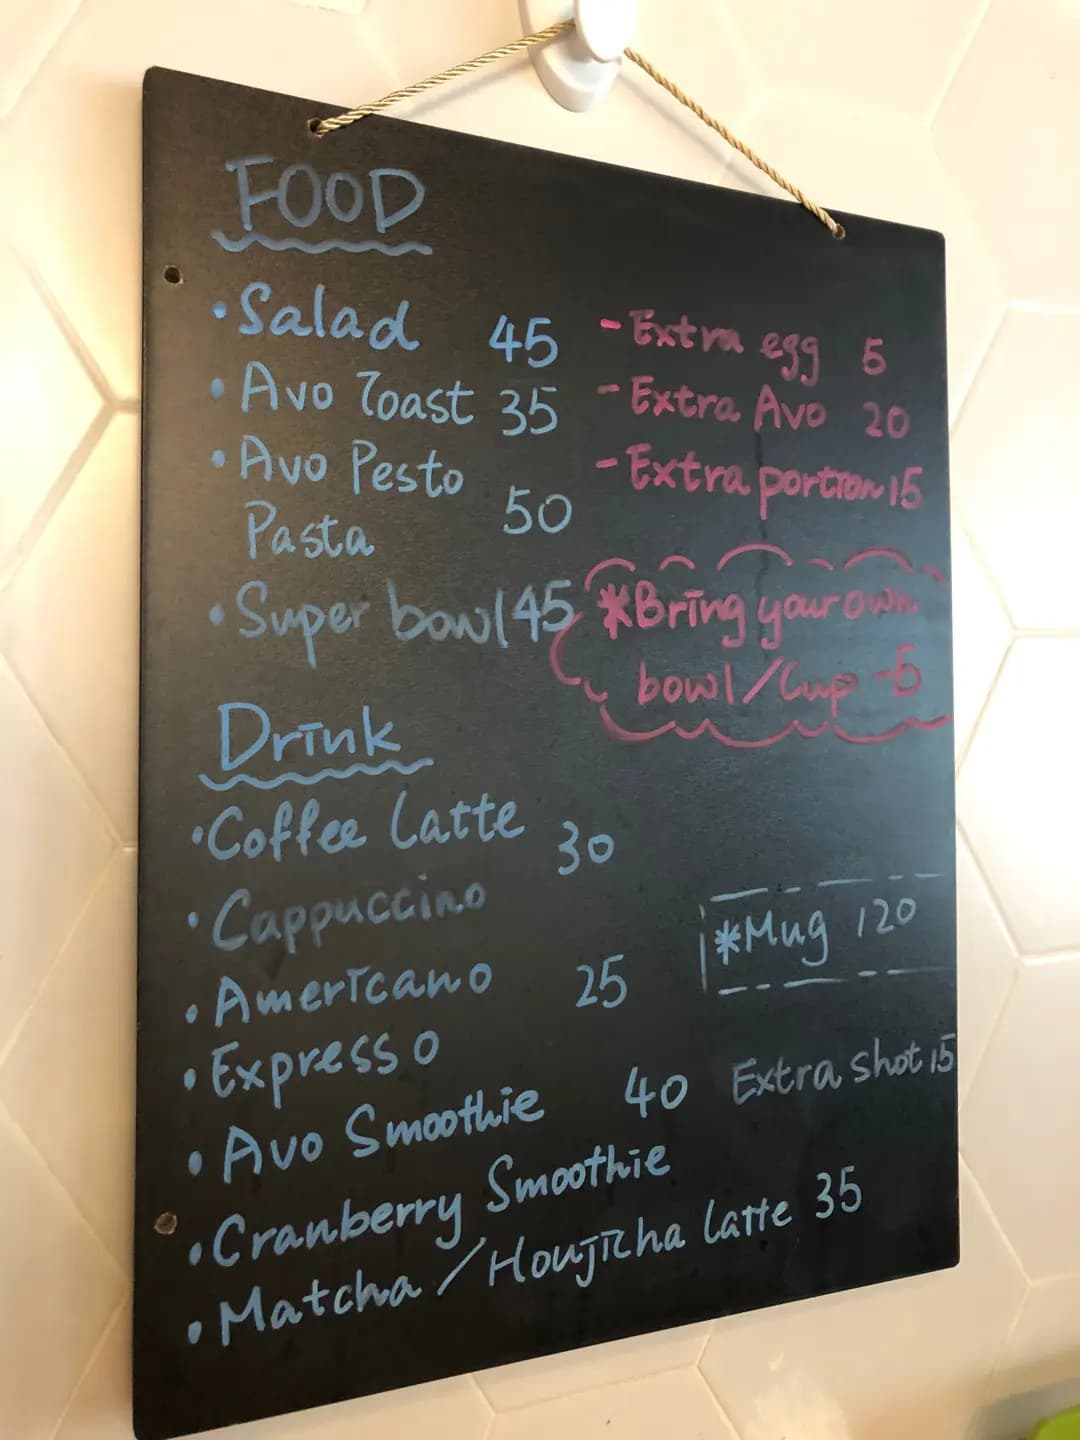 FOOD
• Salad 45
• Avo Toast 35
• Avo Pesto
Pasta 50
• Super bowl 45
- Extra egg 5
- Extra Avo 20
- Extra portion 15
*Bring your own
bowl/Cup -5
Drink
• Coffee Latte
30
• Cappuccino
• Americano 25
• Expresso
• Avo Smoothie 40
• Cranberry Smoothie
• Matcha / Houjicha Latte 35
*Mug 120
Extra shot 15